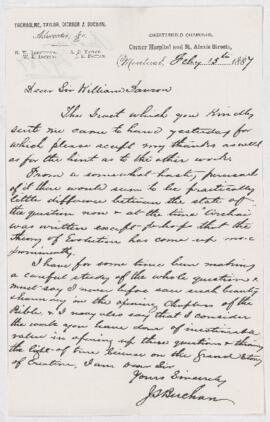 TRENHOLME, TAYLOR, DICKSON & BUCHAN,
Advocates, &c.
N. W. TRENHOLME, A. D. TAYLOR,
W. E. DICKSON, J. S. BUCHAN.
Corner Hospital and St. Alexis Streets,
Montreal, Feby 15th 1887
Dear Sir William Dawson
The Tract which you kindly
sent me came to hand yesterday for
which please accept my thanks as well
as for the hint as to the other work.
From a somewhat hasty perusal
of it there would seem to be practically
little difference between the state of
the question now & at the time
was written except perhaps that the
Theory of Evolution has come up more
prominently.
I have for some time been making
a careful study of the whole question &
must say I never before saw such beauty
& harmony in the opening Chapters of the
Bible, & I may also say that I consider
the work you have done of inestimable
value in opening up these questions & throwing
the light of true Science on the Grand Story
of Creation, I am Dear Sir
Yours Sincerely
J S Buchan